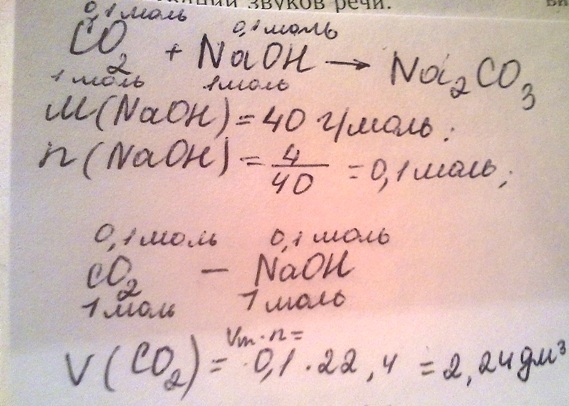 звуков речи.
0,1 моль 0,1 моль
CO₂ + NaOH → Na₂CO₃
1 моль 1 моль
M(NaOH) = 40 г/моль;
n(NaOH) = 4/40 = 0,1 моль;
0,1 моль 0,1 моль
CO₂ — NaOH
1 моль 1 моль
Vm·n=
V(CO₂) = 0,1·22,4 = 2,24 дм³